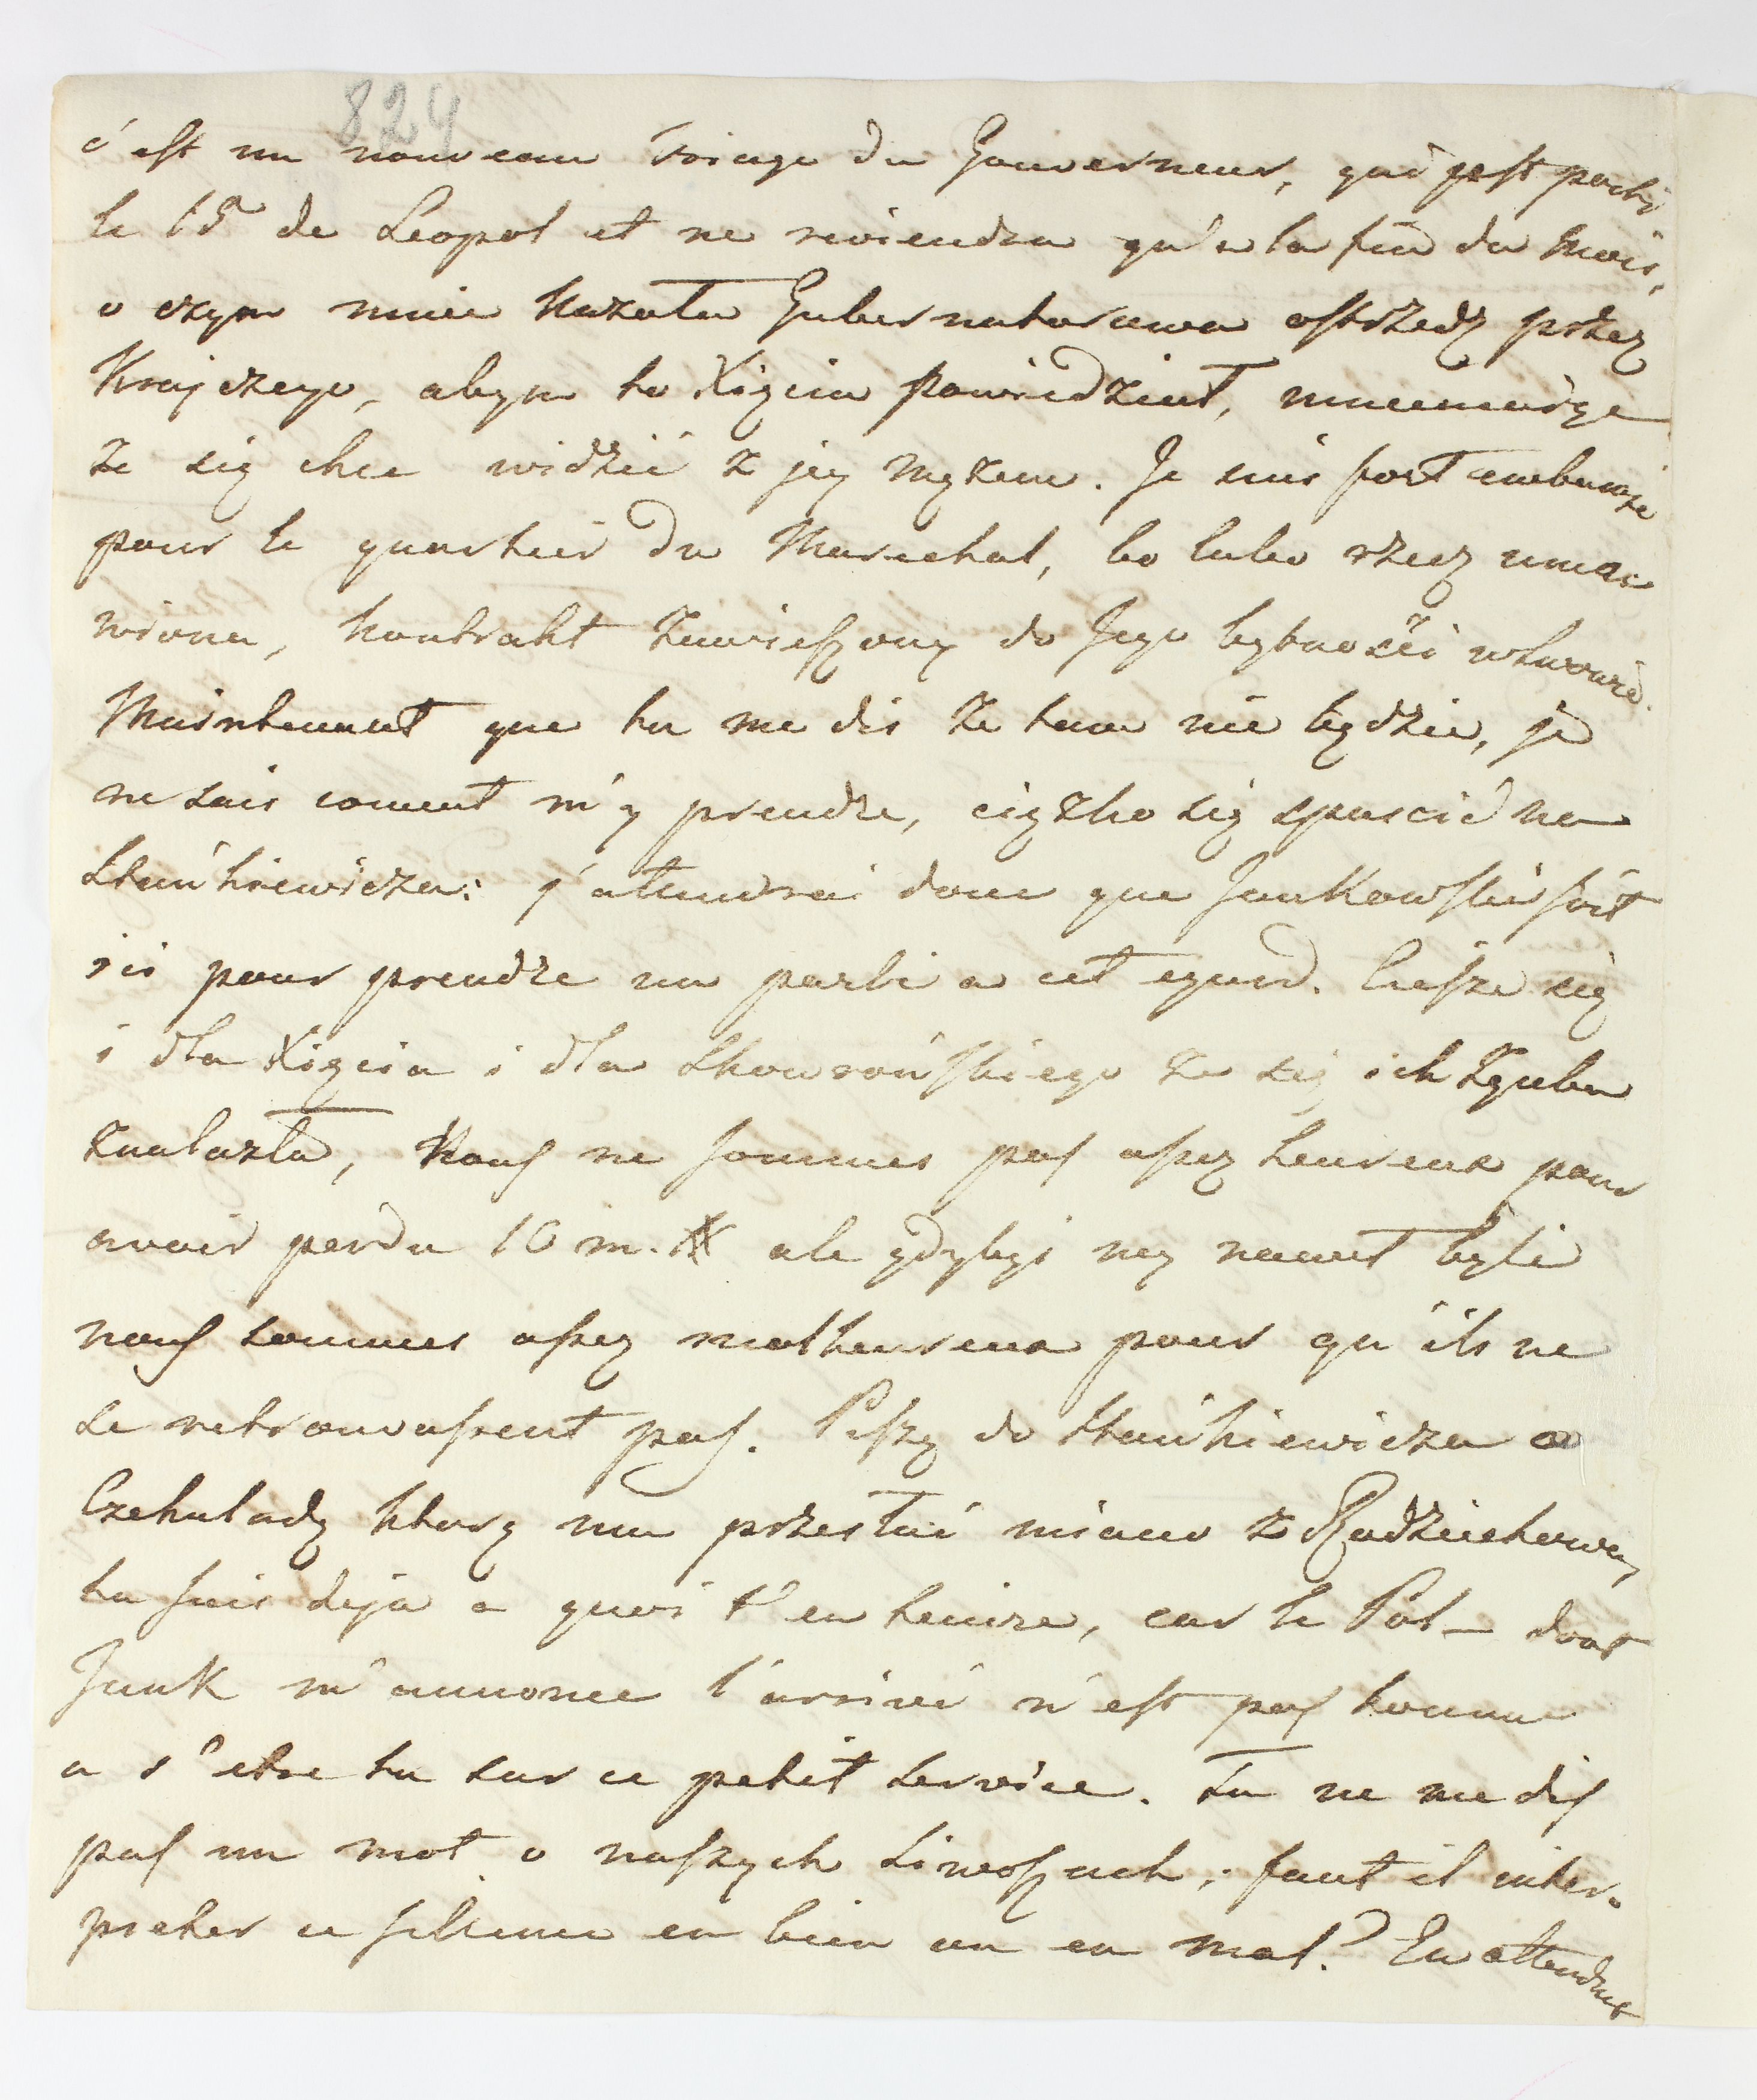 824
c'est un nouveau voiage du Gouverneur, qui est parti
le 15 de Leopol et ne reviendra qu'a la fin du mois,
o czym mnie kazała Gubernatorowa ostrzedz przez
Krajczego, abym to Xięcia powiedział, mniemaiąc
że się chce widzić z jey mężem. Je suis fort embarassé
pour le quartier du Marechal, bo lubo rzecz umó-
wiona, kontrakt zawieszony do Jego bytności
Maintenant que tu me dis że tam nie będzie, je
ne sais coment m'y prendre, cięzko się spuscić na
Stańkiewicza: j'atendrai donc que Jankowski soit
ici pour prendre un parti a cet egard. Ciesze się
i dla Xięcia i dla Skowrońskiego że się ich zguba
znalazła, Nous ne sommes pas assez heureux pour
avoir perdu 10 m. # ale gdybyś my nawet byli
nous sommes assez malheureux pour qu'ils ne
se retrouvassent pas. Piszę do Stańkiewicza o
Czekuladę ktorą mu przesłać miano z Radziechowa,
tu sais deja a quoi t'en tenire, car le Pol- dont
Jank m'annonce l'arrivé n'est pas homme
a s'etre tu sur ce petit service. Tu ne me dis
pas un mot o naszych Siwoszach; faut il inter-
preter ce silence en bien ou en mal? En attendant